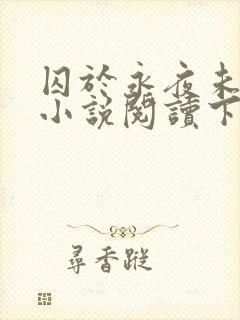 囚於永夜未
小說閱讀下
尋香蹤